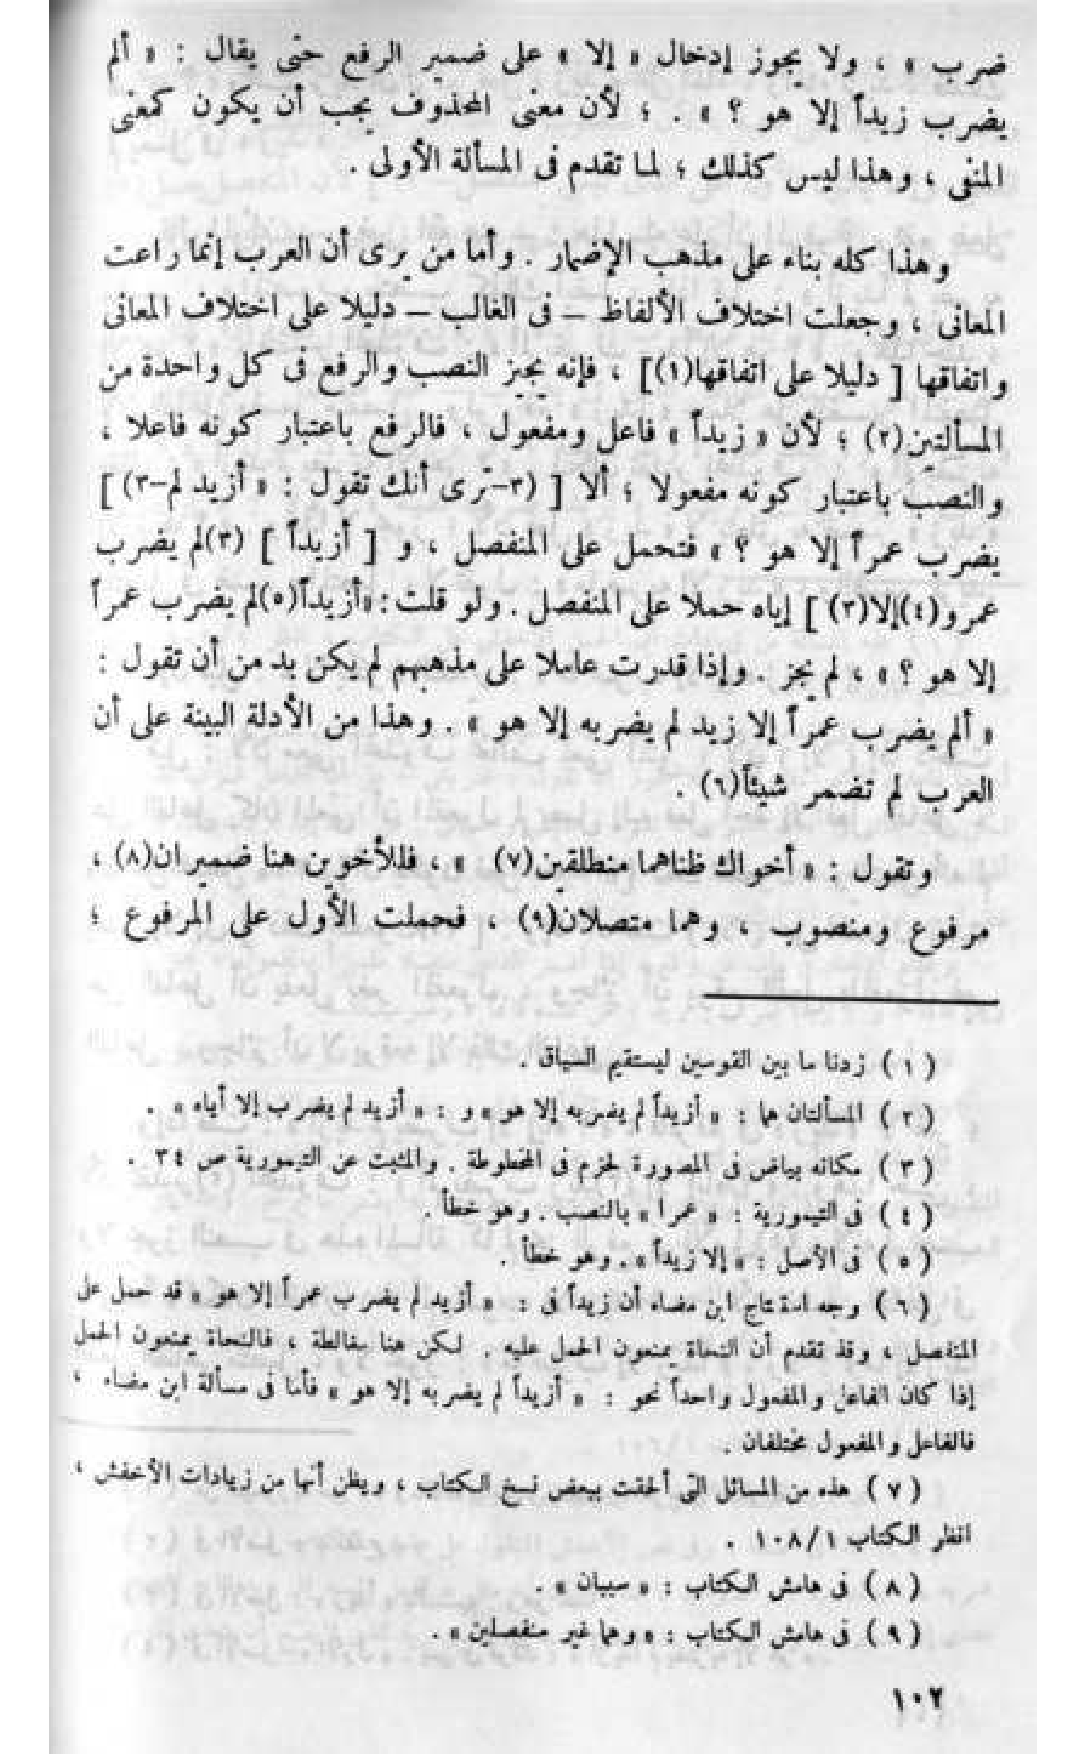 ضرب » ، ولا يجوز إدخال « إلا » على ضمير الرفع حتى يقال : « ألم
يضرب زيداً إلا هو ؟ » . ؛ لأن معنى المحذوف يجب أن يكون كمعنى
المنفى ، وهذا ليس كذلك ؛ لما تقدم فى المسألة الأولى .
وهذا كله بناء على مذهب الإضمار . وأما من يرى أن العرب إنما راعت
المعانى ، وجعلت اختلاف الألفاظ – فى الغالب – دليلا على اختلاف المعانى
واتفاقها [ دليلا على اتفاقها(١)] ، فإنه يجيز النصب والرفع فى كل واحدة من
المسألتين(٢) ؛ لأن « زيداً » فاعل ومفعول ، فالرفع باعتبار كونه فاعلا ،
والنصب باعتبار كونه مفعولا ؛ ألا [ (٣–ترى أنك تقول : « أزيد لم–٣) ]
يضرب عمراً إلا هو ؟ » فتحمل على المنفصل ، و [ أزيداً ] (٣)لم يضرب
عمرو(٤)إلا(٣) ] إياه حملا على المنفصل . ولو قلت : «أزيداً(٥)لم يضرب عمراً
إلا هو ؟ » ، لم يجز . وإذا قدرت عاملا على مذهبهم لم يكن بد من أن تقول :
« ألم يضرب عمراً إلا زيد لم يضربه إلا هو » . وهذا من الأدلة البينة على أن
العرب لم تضمر شيئاً(٦) .
وتقول : « أخواك ظناهما منطلقين(٧) » ، فللأخوين هنا ضميران(٨) ،
مرفوع ومنصوب ، وهما متصلان(٩) ، فحملت الأول على المرفوع ؛
( ١ ) زدنا ما بين القوسين ليستقيم السياق .
( ٢ ) المسألتان هما : « أزيداً لم يضربه إلا هو » و : « أزيد لم يضرب إلا أياه » .
( ٣ ) مكانه بياض فى المصورة لخزم فى المخطوطة . والمثبت عن التيمورية ص ٣٤ .
( ٤ ) فى التيمورية : « عمرا » بالنصب . وهو خطأ .
( ٥ ) فى الأصل : « إلا زيداً » . وهو خطأ .
( ٦ ) وجه استنتاج ابن مضاء أن زيداً فى : « أزيد لم يضرب عمراً إلا هو » قد حمل على
المنفصل ، وقد تقدم أن النحاة يمنعون الحمل عليه . لكن هنا مغالطة ، فالنحاة يمنعون الحمل
إذا كان الفاعل والمفعول واحداً نحو : « أزيداً لم يضربه إلا هو » فأما فى مسألة ابن مضاء ،
فالفاعل والمفعول مختلفان .
( ٧ ) هذه من المسائل التى ألحقت ببعض نسخ الكتاب ، ويظن أنها من زيادات الأخفش ،
انظر الكتاب ١٠٨/١ .
( ٨ ) فى هامش الكتاب : « سببان » .
( ٩ ) فى هامش الكتاب : « وهما غير منفصلين » .
١٠٢